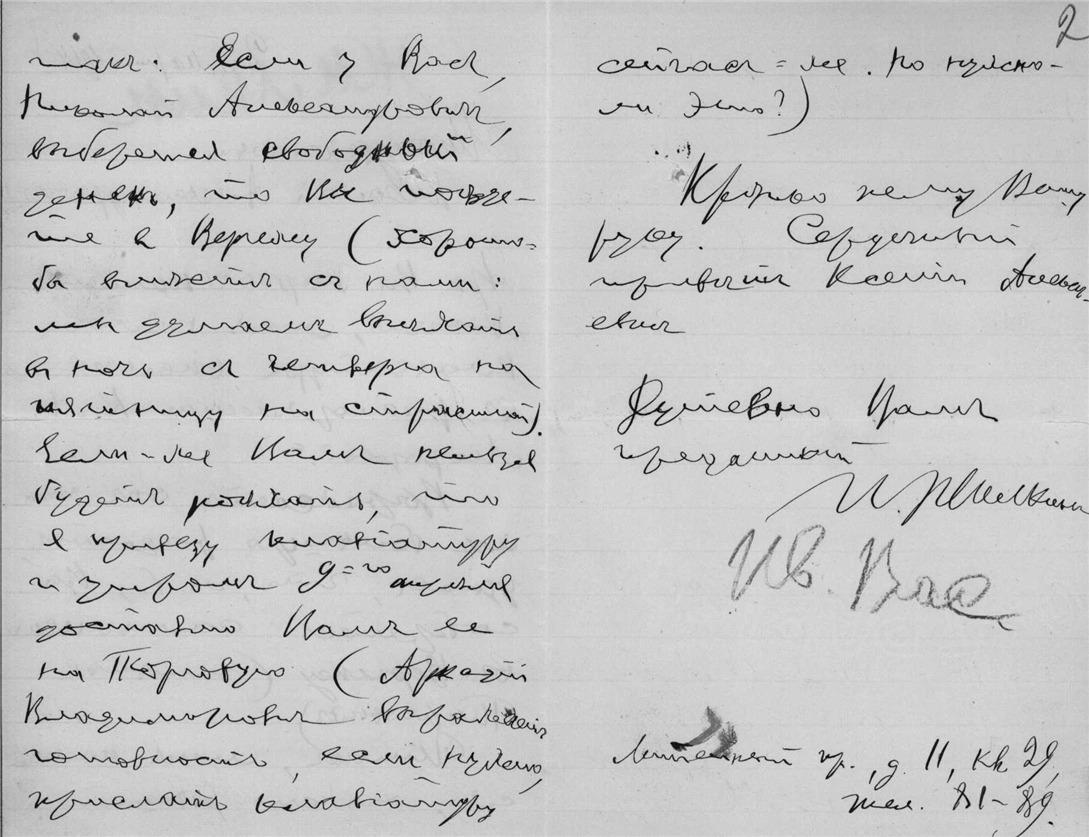 2
такъ: Если у Васъ,
Николай Александровичъ,
выберется свободный
денекъ, то Вы поѣде-
те въ Верейку (хорошо-
бы вмѣстѣ съ нами:
мы думаемъ выѣхать
въ ночь съ четверга на
пятницу на страстной).
Если-же Вамъ нельзя
будетъ поѣхать, то
я привезу клавіатуру
и утромъ 9=го апрѣля
доставлю Вамъ ее
на Торговую (Аркадій
Владиміровичъ выражаетъ
готовность, если нужно,
прислать клавіатуру
сейчасъ=же. Но нужно-
ли это?)
Крѣпко жму Вашу
руку. Сердечный
привѣтъ Ксеніи Алексѣ-
евнѣ
Душевно Вамъ
преданный
И.
Ив. Вас.
Литейный пр., д. 11, кв 29,
тел. 81-89.